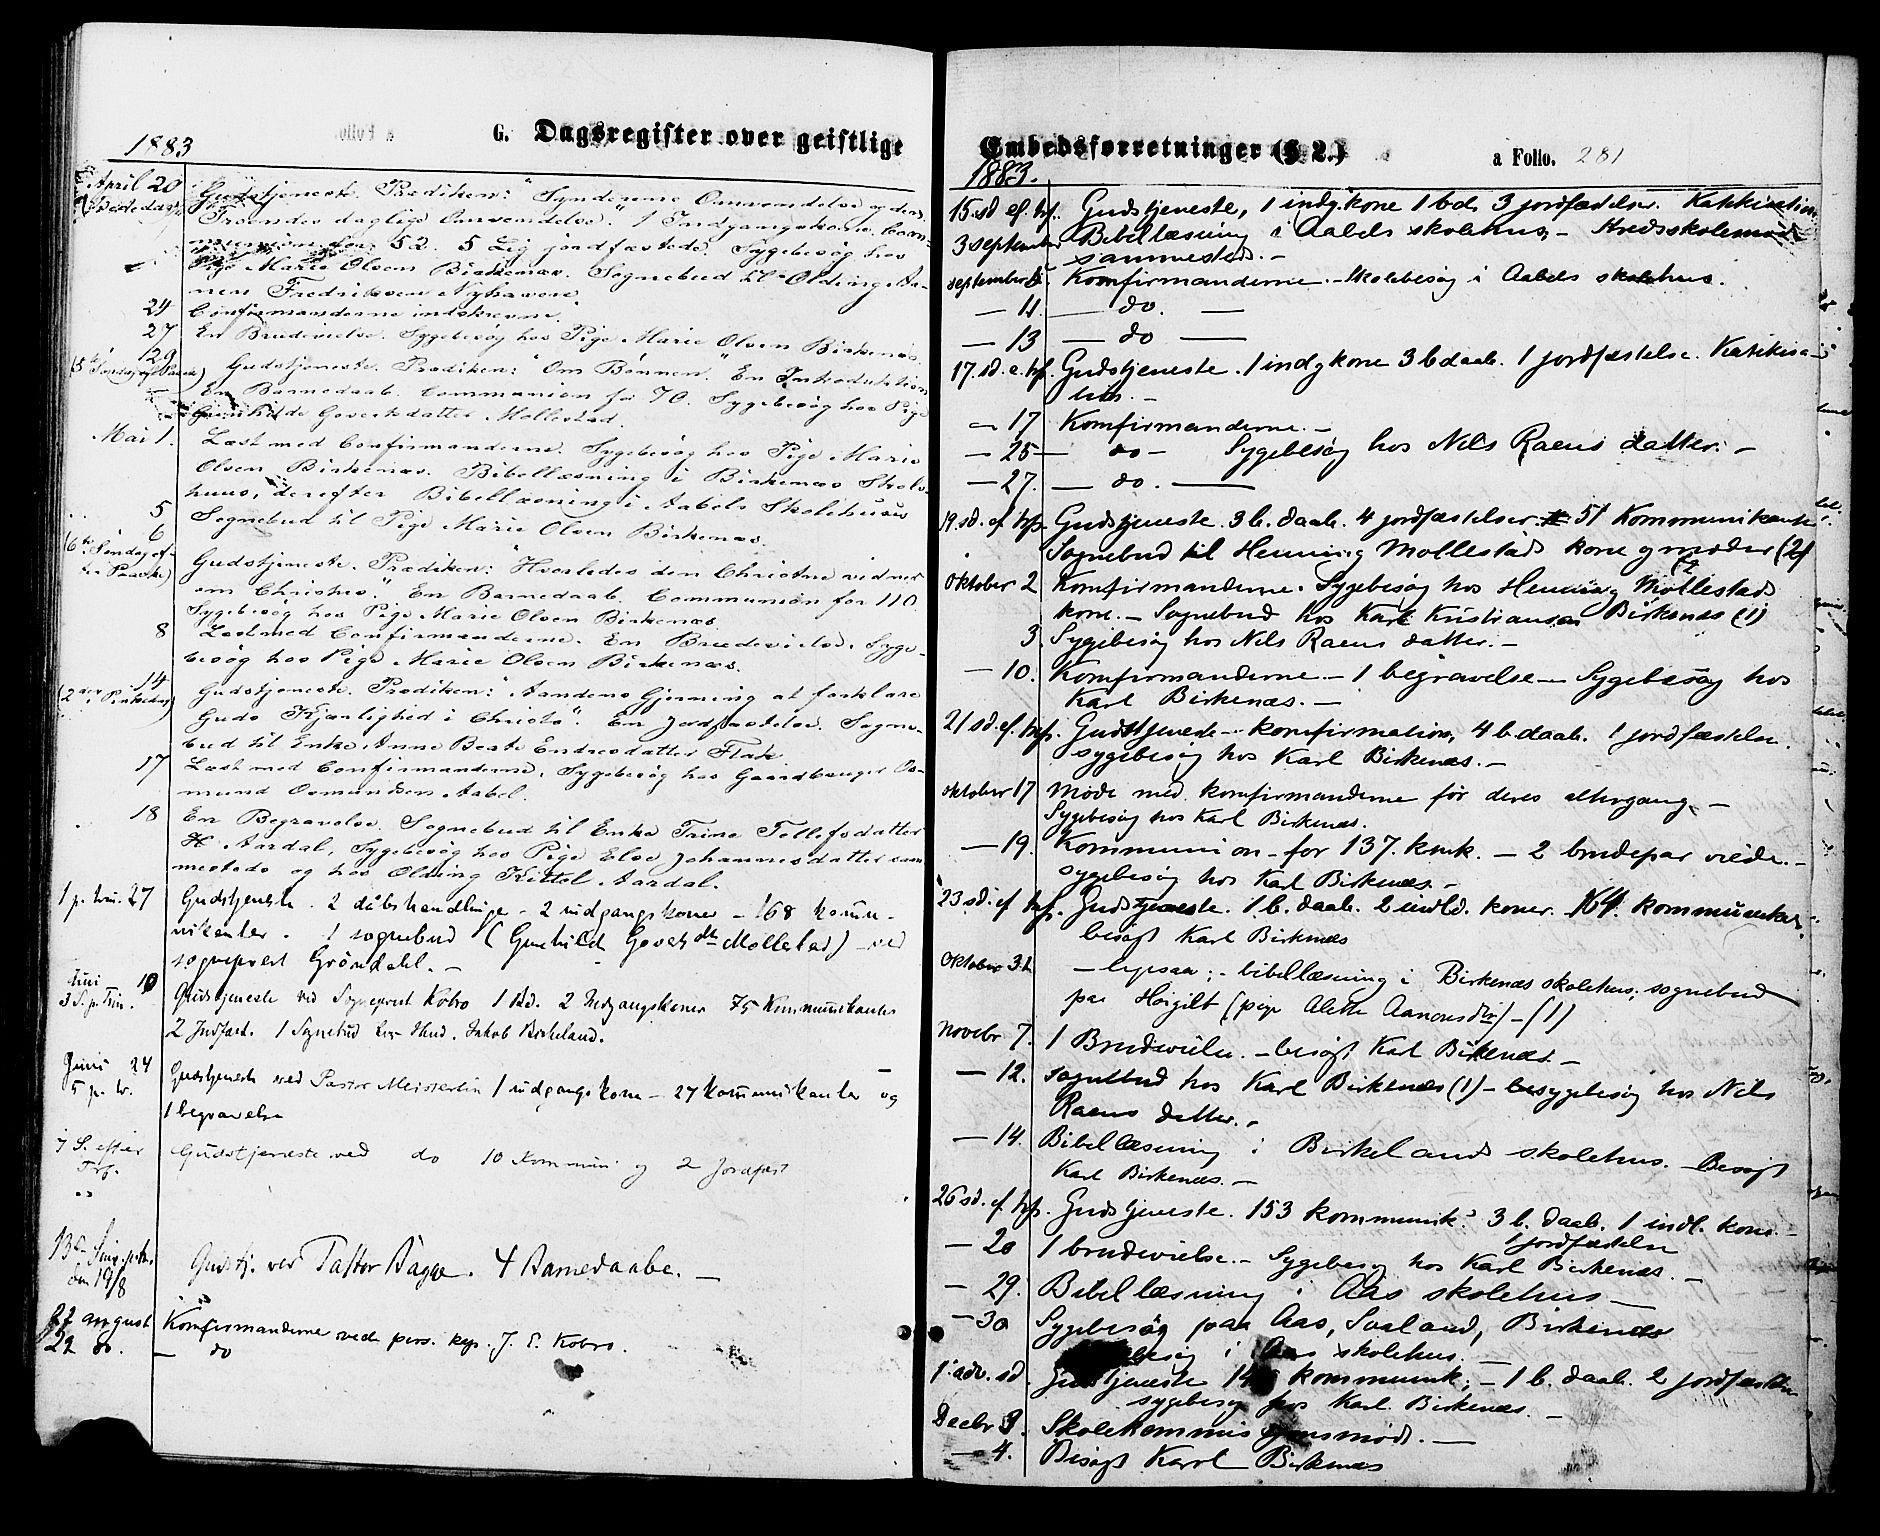 G. Dagsregister over geistlige
1883
April 20
(Bededag)
Gudstjeneste. Prædiken: "Synderens Omvendelse og den
Troendes daglige Omvendelse." 1 Indgangskone. Com-
munion for 52. 5 Lig jordfæstede. Sygebesøg hos
Pige Marie Olsen Birkenæs. Sognebud til Olding Aa-
nen Fredriksen Nyhavene.
24 Confirmanderne indskrevne.
27 En Brudevielse. Sygebesøg hos Pige Marie Olsen Birkenæs.
29
(5te Søndag ef. Paaske)
Gudstjeneste. Prædiken: "Om Bønnen." En Introduktion
En Barnedaab. Communion for 70. Sygebesøg hos Pige
Gunhilde Govertsdatter Mollestad.
Mai 1. Læst med Confirmanderne. Sygebesøg hos Pige Marie
Olsen Birkenæs. Bibellæsning i Birkenæs Skole-
huus, derefter Bibellæsning i Aabels Skolehuus
5 Sognebud til Pige Marie Olsen Birkenæs.
6
(6te Søndag ef-
ter Paaske)
Gudstjeneste. Prædiken: "Hvorledes den Christne vidner
om Christus". En Barnedaab. Communion for 110.
Sygebesøg hos Pige Marie Olsen Birkenæs
8 Læst med Confirmanderne. En Brudevielse. Syge-
besøg hos Pige Marie Olsen Birkenæs.
14
(2den Pintsedag)
Gudstjeneste. Prædiken: "Aandens Gjerning at forklare
Guds Kjærlighed i Christo". En Jordfæstelse. Sogne-
bud til Enke Anne Beate Endresdatter Flak
17 Læst med Confirmanderne. Sygebesøg hos Gaardbruger Os-
mund Osmundsen Aabel.
18 En Begravelse. Sognebud til Enke Trine Tellefsdatter
H Aardal, Sygebesøg hos Pige Else Johannesdatter sam-
mesteds og hos Olding Kittel Aardal.
1 p. trin. 27 Gudstjeneste. 2 dåbshandlinge - 2 indgangskoner - 168 kommu-
nikanter. 1 sognebud (Gunhild Goverts dtr Mollestad) - ved
sogneprest Grøndahl. -
Juni 10
3 S. p. Trin.
Gudstjeneste ved Sogneprest Kobro 1 Bd. 2 Indgangskoner 75 Kommunikanter
2 Jordfæst. 1 Sognebud Jakob Birkeland.
Juni 24
5 p. tr.
Gudstjeneste ved Pastor Meisterlin 1 indgangskone - 27 kommunikanter og
1 begravelse
7 S. efter
Trf.
Gudstjeneste ved do 10 Kommuni og 2 Jordfæst
13de Sønd. p. tr.
den 19/8
Gudstj. ved Pastor Bagge. 4 Barnedaabe. -
22 august Komfirmanderne ved pers. kap. J. E. Kobro.
29 do. - do
Embedsforretninger (§ 2.)
a Folio. 281
1883.
15. sd ef. trf. Gudstjeneste, 1 indg.kone 1 bd. 3 jordfæstelser. Katekisation
3 september Bibellæsning i Aabels skolehus, - Kredsskolemøde
sammesteds. -
september 5 Komfirmanderne. - skolebesøg i Aabels skolehus.
- 11 - do. -
- 13 - do -
17. sd. e. trf. Gudstjeneste. 1 indg kone 3 b daab. 1 jordfæstelse. Katekisa-
tion. -
- 17 Komfirmanderne. -
- 25 - do - Sygebesøg hos Nils Raens datter. -
- 27. - do. -
19. sd. ef. trf. Gudstjeneste. 3 b. daab. 4 jordfæstelser. 51 Kommunikanter
Sognebud til Henning Mollestads kone og moder (2)
oktober 2 Komfirmanderne. Sygebesøg hos Henning Mollestads
kone. - Sognebud hos Karl Kristiansen Birkenæs (1)
3. Sygebesøg hos Nils Raens datter. -
- 10. Komfirmanderne - 1 begravelse - Sygebesøg hos
Karl Birkenæs. -
21 sd. ef. trf. Gudstjeneste - komfirmation, 4 b daab. 1 jordfæstelse.
sygebesøg hos Karl Birkenæs. -
oktober 17 Møde med komfirmanderne før deres altergang -
Sygebesøg hos Karl Birkenæs.
- 19. Kommunion - for 137. kmk. - 2 brudepar viede. -
sygebesøg hos Karl Birkenæs. -
23. sd. ef. trf. Gudstjeneste. 1 b. daab. 2 indld. koner. 164. kommunikan.
besøgt Karl Birkenæs
Oktober 31 - ligesaa; - bibellæsning i Birkenæs skolehus; sognebud
paa Høigilt (pige Alette Aanonsdtr) - (1)
Novebr 7. 1 Brudevielse. - besøgt Karl Birkenæs -
- 12. sognebud hos Karl Birkenæs (1) - sygebesøg hos Nils
Raens datter. -
- 14. Bibellæsning i Birkelands skolehus. - Besøgt
Karl Birkenæs. -
26 sd. ef. trf. Gudstjeneste. 153 kommunik. 3 b. daab. 1 indl. kone. -
1 jordfæstelse
- 20 1 brudevielse. - Sygebesøg hos Karl Birkenæs. -
- 29. Bibellæsning i Aas skolehus -
- 30 Sygebesøg paa Aas, Svaland, Birkenæs
i Aas skolehus. -
1. adv. sd. Gudstjeneste kommunik; - 1 b. daab. 2 jordfæstelser
sygebesøg hos Karl Birkenæs. -
Decbr 3. Skolekommissionsmøde. -
- 4. Besøgt Karl Birkenæs